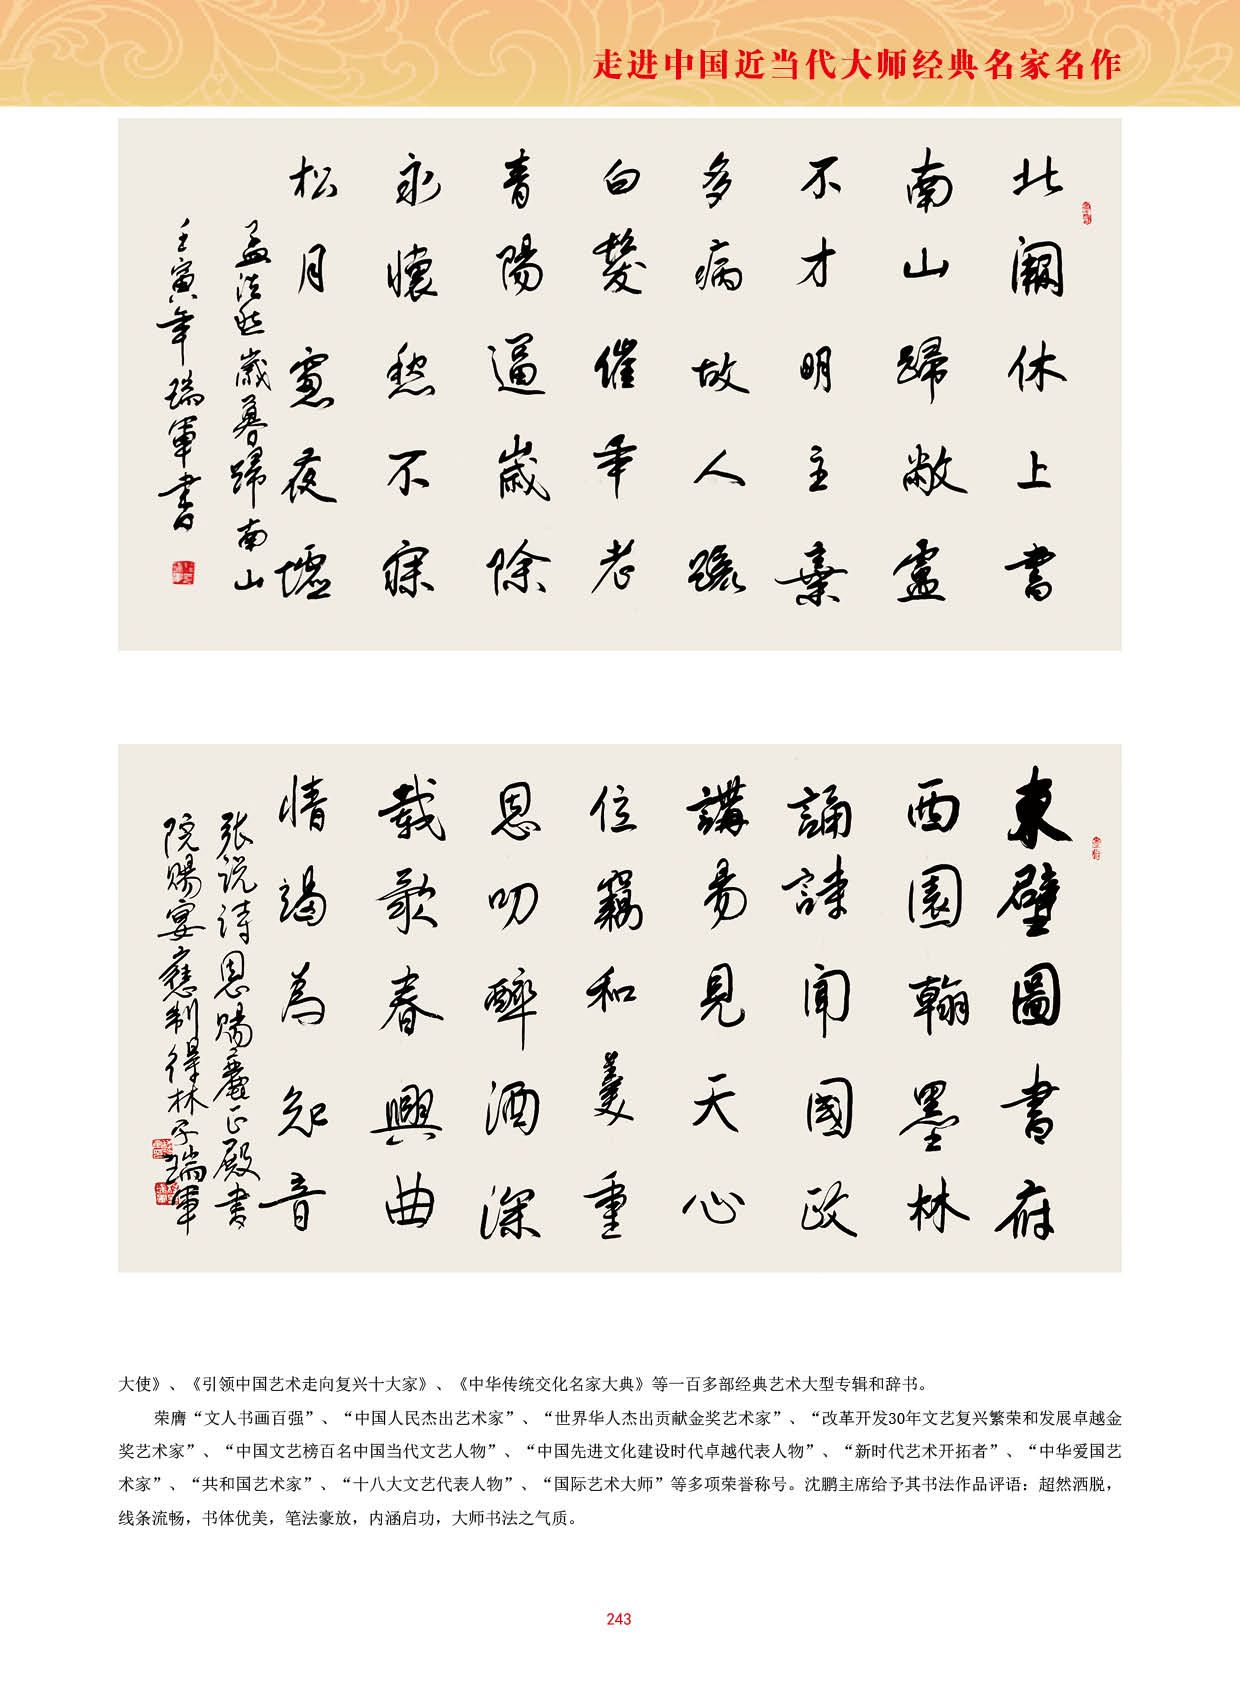 走进中国近当代大师经典名家名作
北闕休上書
南山歸敝廬
不才明主棄
多病故人疏
白髮催年老
青陽逼歲除
永懷愁不寐
松月窻夜墟
孟浩然歲暮歸南山
壬寅年瑞軍書
東壁圖書府
西園翰墨林
誦詩聞國政
講易見天心
位竊和羹重
恩叨醉酒深
載歌春興曲
情竭為知音
张说诗恩赐麗正殿書
院赐宴應制得林字瑞軍
大使》、《引领中国艺术走向复兴十大家》、《中华传统交化名家大典》等一百多部经典艺术大型专辑和辞书。
荣膺“文人书画百强”、“中国人民杰出艺术家”、“世界华人杰出贡献金奖艺术家”、“改革开发30年文艺复兴繁荣和发展卓越金
奖艺术家”、“中国文艺榜百名中国当代文艺人物”、“中国先进文化建设时代卓越代表人物”、“新时代艺术开拓者”、“中华爱国艺
术家”、“共和国艺术家”、“十八大文艺代表人物”、“国际艺术大师”等多项荣誉称号。沈鹏主席给予其书法作品评语：超然洒脱，
线条流畅，书体优美，笔法豪放，内涵启功，大师书法之气质。
243